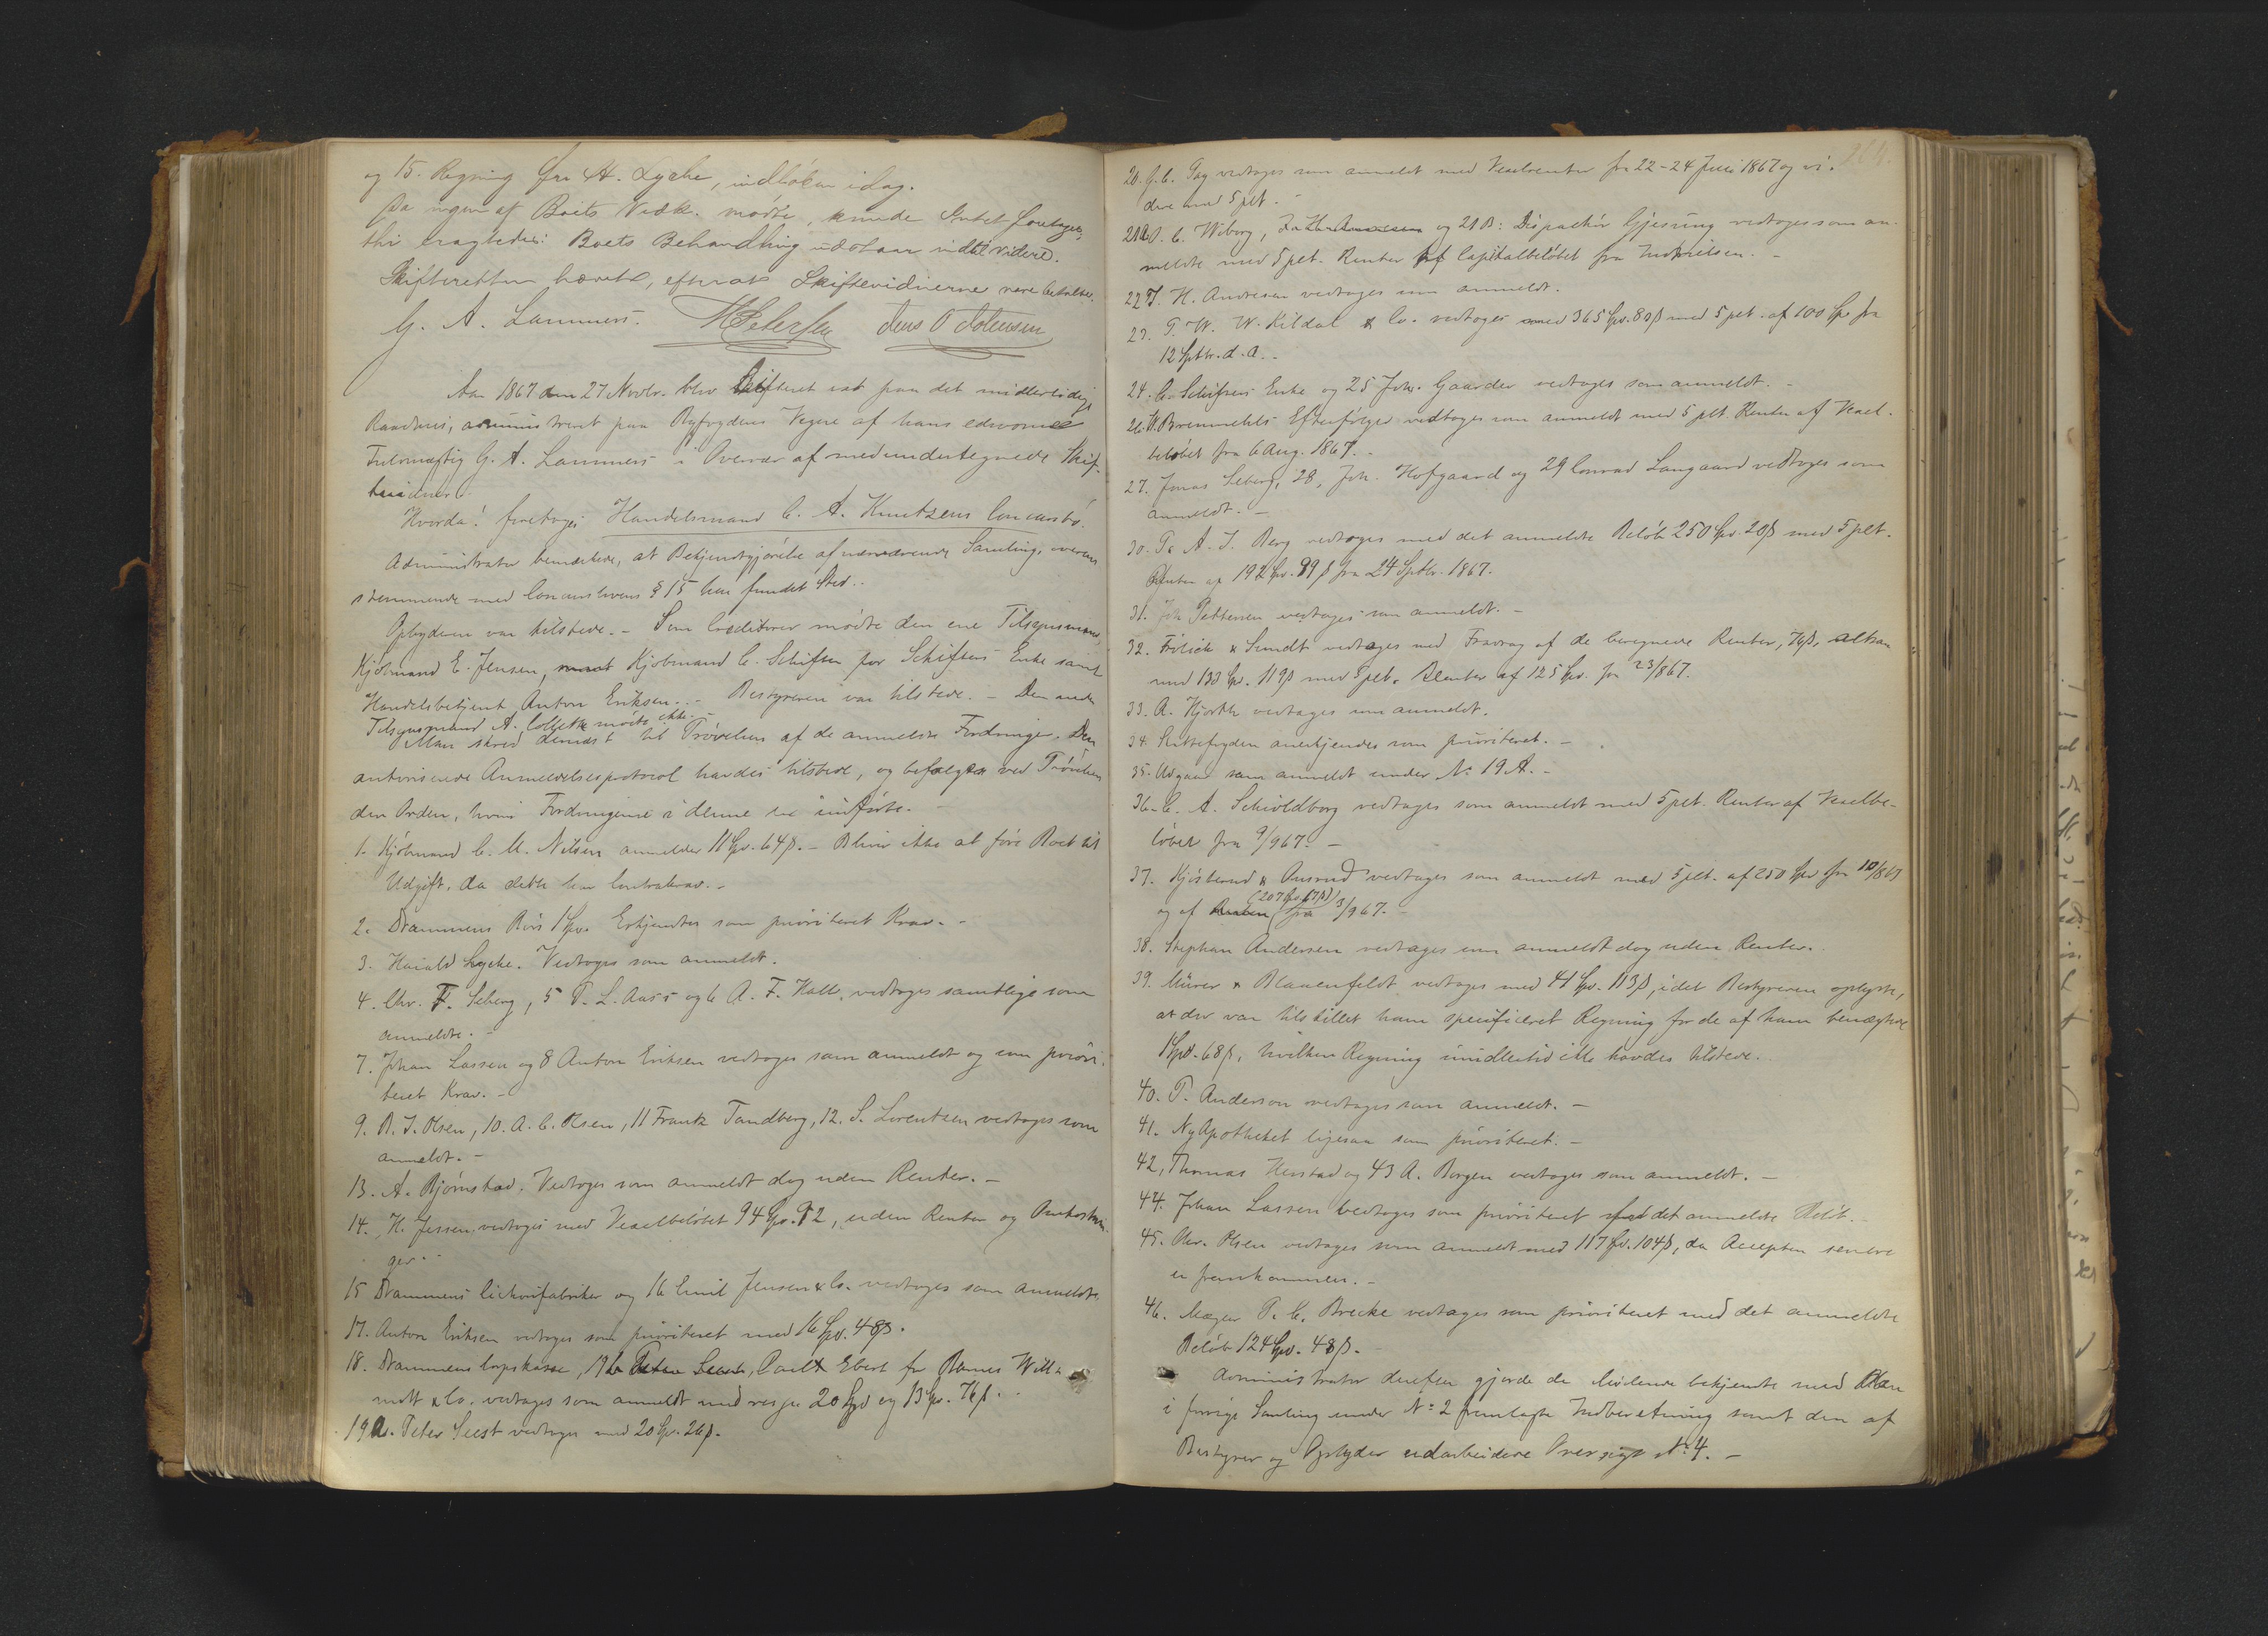 og 15. Regning fra A. Lyche, indkom idag.
Da ingen af Boets Vedk. mødte, kunde Intet foretages,
thi eragtedes: Boets Behandling udstaar indtil videre.
Skifteretten hævet, efterat Skiftevidnerne vare betalte.
G. A. Lammers. Jens O Solensen
Aar 1867 den 27 Novbr. blev Skifteret sat paa det midlertidige
Raadhuus, administreret paa Byfogdens Vegne af hans edsvorne
Fuldmægtig G. A. Lammers i Overvær af medundertegnede Skif-
tevidner.
Hvorda! foretoges Handelsmand C. A. Knutzens Concursbo.
Administrator bemærkede, at Bekjendtgjørelse af nærværende Samling, overens-
stemmende med Concurslovens § 15 har fundet Sted. -
Opbyderen var tilstede. - Som Creditorer mødte den ene Tilsynsmand,
Kjøbmand E. Jensen, Kjøbmand C. Schiftes for Schiftes Enke samt
Handelsbetjent Anton Eriksen. - Bestyreren var tilstede. - Den anden
Tilsynsmand A. Collett mødte ikke. -
Man skred dernæst til Prøvelsen af de anmeldte Fordringer. Den
autoriserede Anmeldelsesprotocol havdes tilstede, og befulgtes ved Prøvelsen
den Orden, hvori Fordringerne i denne ere indførte. -
1. Kjøbmand C. M. Nilsen anmelder 11 Spd. 64 ß. - Bliver ikke at føre Boet til
Udgift, da dette har Contrakrav. -
2. Drammens Børs 1 Spd. Erkjendtes som prioriteret Krav. -
3. Harald Lyche. Vedtoges som anmeldt.
4. Chr. F. Seberg, 5 P. L. Aass og 6 A. F. Hall, vedtoges samtlige som
anmeldte. -
7. Johan Lassen og 8 Anton Eriksen vedtoges som anmeldt og som priori-
teret Krav. -
9. B. I. Olsen, 10. A. C. Olsen, 11 Frantz Tandberg, 12. S. Lorentzen vedtoges som
anmeldt. -
13. A. Bjørnstad. Vedtoges som anmeldt dog uden Renter. -
14. H. Jessen, vedtoges med Vexelbeløbet 94 Spd. 72, uden Renter og Omkostnin-
ger. -
15 Drammens Cichorifabriker og 16 Emil Jensen & Co. vedtoges som anmeldte.
17. Anton Eriksen vedtoges som prioriteret med 16 Spd. 48 ß.
18. Drammens Copskasse, 19 b Paul Ebert for Barnes Will-
mott & Co. vedtoges som anmeldt med resp. 20 Spd og 13 Spd. 76 ß.
19 a. Peter Seest vedtoges med 20 Spd. 26 ß.
20. J. C. Pay vedtoges som anmeldt med Vexelrenter fra 22-24 Juli 1867 og vi-
dere med 5 pCt. -
21 a O. C. Wiborg, og 21 B: Dispachør Gjesing vedtoges som an-
meldte med 5 pCt. Renter af Capitalbeløbet fra Indstielsen. -
22. J. H. Andresen vedtoges som anmeldt.
23. P. W. W. Kildal & Co. vedtoges med 365 Spd. 80 ß med 5 pCt. af 100 Spd fra
12 Septbr. d. A. -
24. C. Schiftes Enke og 25 Joh. Gaarder vedtoges som anmeldt. -
26. W. Bremmehls Efterfølger vedtoges som anmeldt med 5 pCt. Renter af Vexel-
beløbet fra 6 Aug. 1867. -
27. Jonas Seberg, 28, Joh. Hofgaard og 29 Conrad Langaard vedtoges som
anmeldt. -
30. P. A. J. Berg vedtoges med det anmeldte Beløb 250 Spd. 20 ß med 5 pCt.
Renter af 192 Spd. 89 ß fra 24 Septbr. 1867.
31. Joh Pettersen vedtoges som anmeldt. -
32. Frølich & Sundt vedtages med Fradrag af de beregnede Renter, 76 ß, altsaa
med 133 Spd. 119 ß med 5 pCt. Renter af 125 Spd. fra 23/8 67.
33. A. Hjorth vedtages som anmeldt.
34. Rettefogden anerkjendes som prioriteret. -
35. Udgaar som anmeldt under No. 19 A. -
36. C. A. Schioldborg vedtages som anmeldt med 5 pCt. Renter af Vexelbe-
løbet fra 9/9 67. -
37. Kjøsterud & Omsrud vedtages som anmeldt med 5 pCt. af 250 Spd fra 10/8 67
og af (207 Spd 67 ß) fra 3/9 67. -
38. Stephan Andersen vedtages som anmeldt dog uden Renter.
39. Mürer & Blauenfeldt vedtages med 41 Spd. 113 ß, idet Bestyreren oplyste,
at der var tilstillet ham specificeret Regning for de af ham benægtede
1 Spd. 68 ß, hvilken Regning imidlertid ikke havdes tilstede.
40. P. Anderson vedtages som anmeldt. -
41. Ny Apotheket ligesaa som prioriteret. -
42, Thomas Herstad og 43 A. Borgen vedtages som anmeldt. -
44. Johan Lassen vedtages som prioriteret med det anmeldte Beløb. -
45. Chr. Olsen vedtages som anmeldt med 117 Spd. 104 ß, da Accepten senere
er fremkommen. -
46. Mægler P. C. Brecke vedtages som prioriteret med det anmeldte
Beløb 124 Spd. 48 ß.
Administrator derefter gjorde de Mødende bekjendte med den
i forrige Samling under No. 2 fremlagte Indberetning samt den af
Bestyrer og Opbyder udarbeidede Oversigt No. 4. -